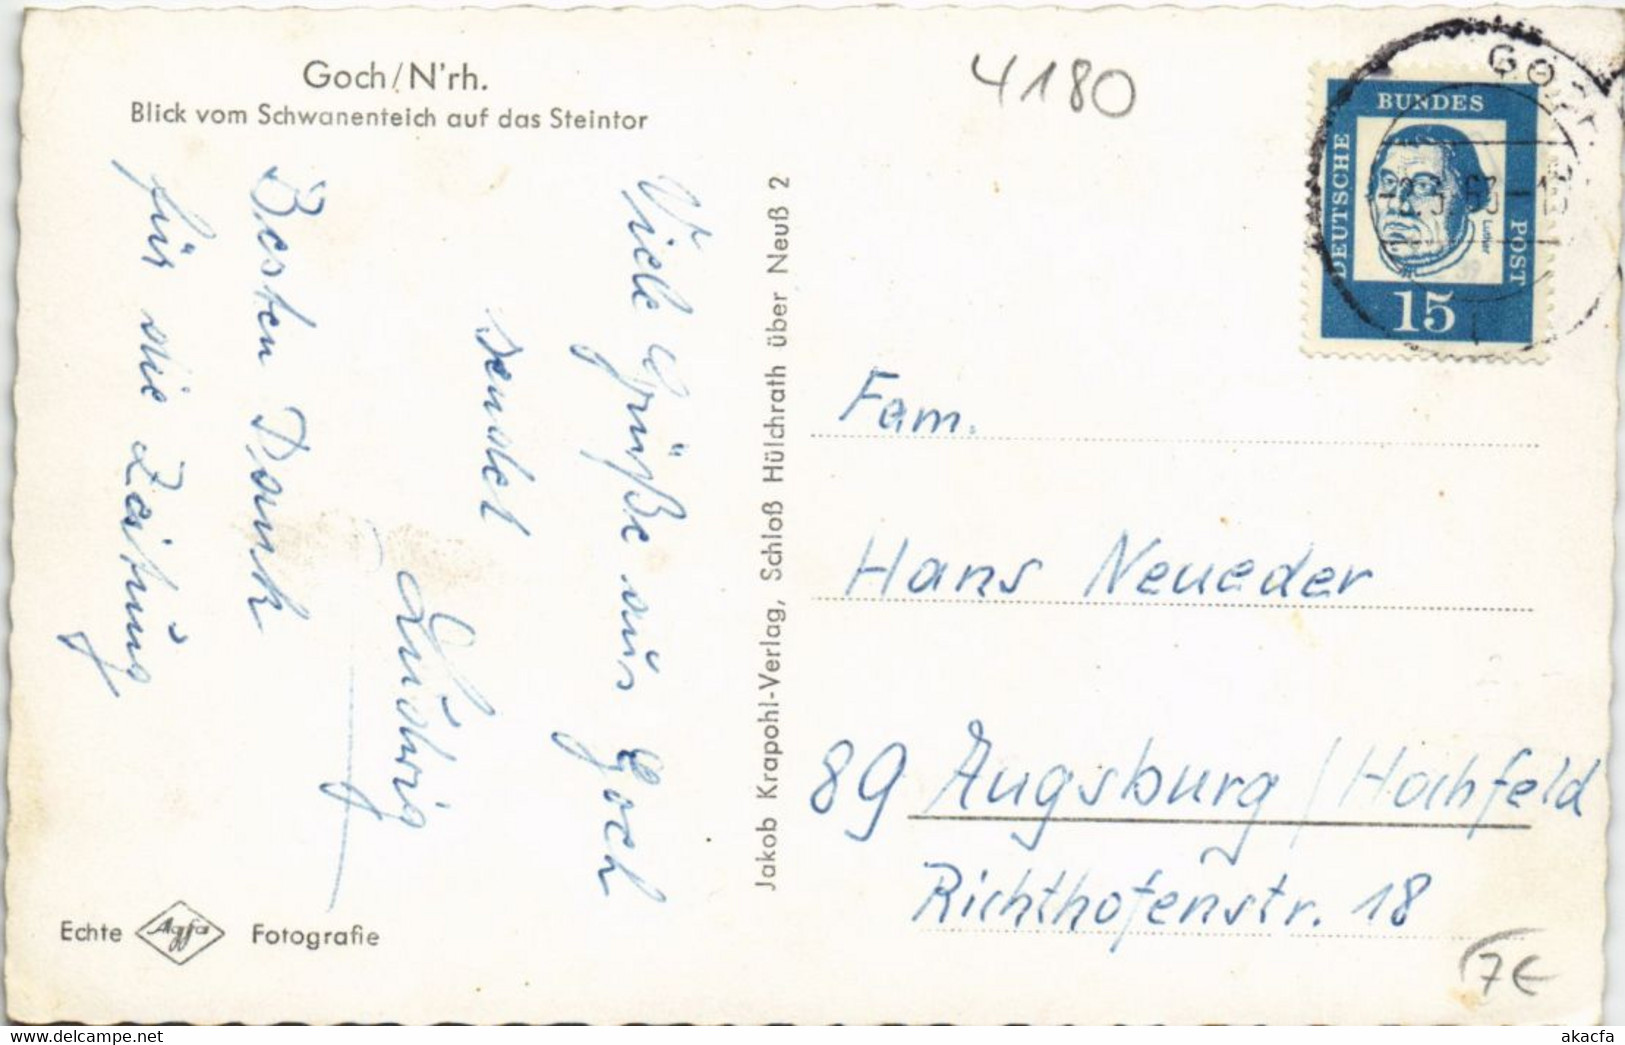 Goch/N'rh.
Blick vom Schwanenteich auf das Steintor
4180
Viele Grüße aus Goch
sendet
Ludwig
Besten Dank
für die Zeitung
Jakob Krapohl-Verlag, Schloß Hülchrath über Neuß 2
Echte Agfa Fotografie
DEUTSCHE BUNDES POST
Luther
15
Fam.
Hans Neueder
89 Augsburg / Hochfeld
Richthofenstr. 18
7€
delcampe.net
akacfa